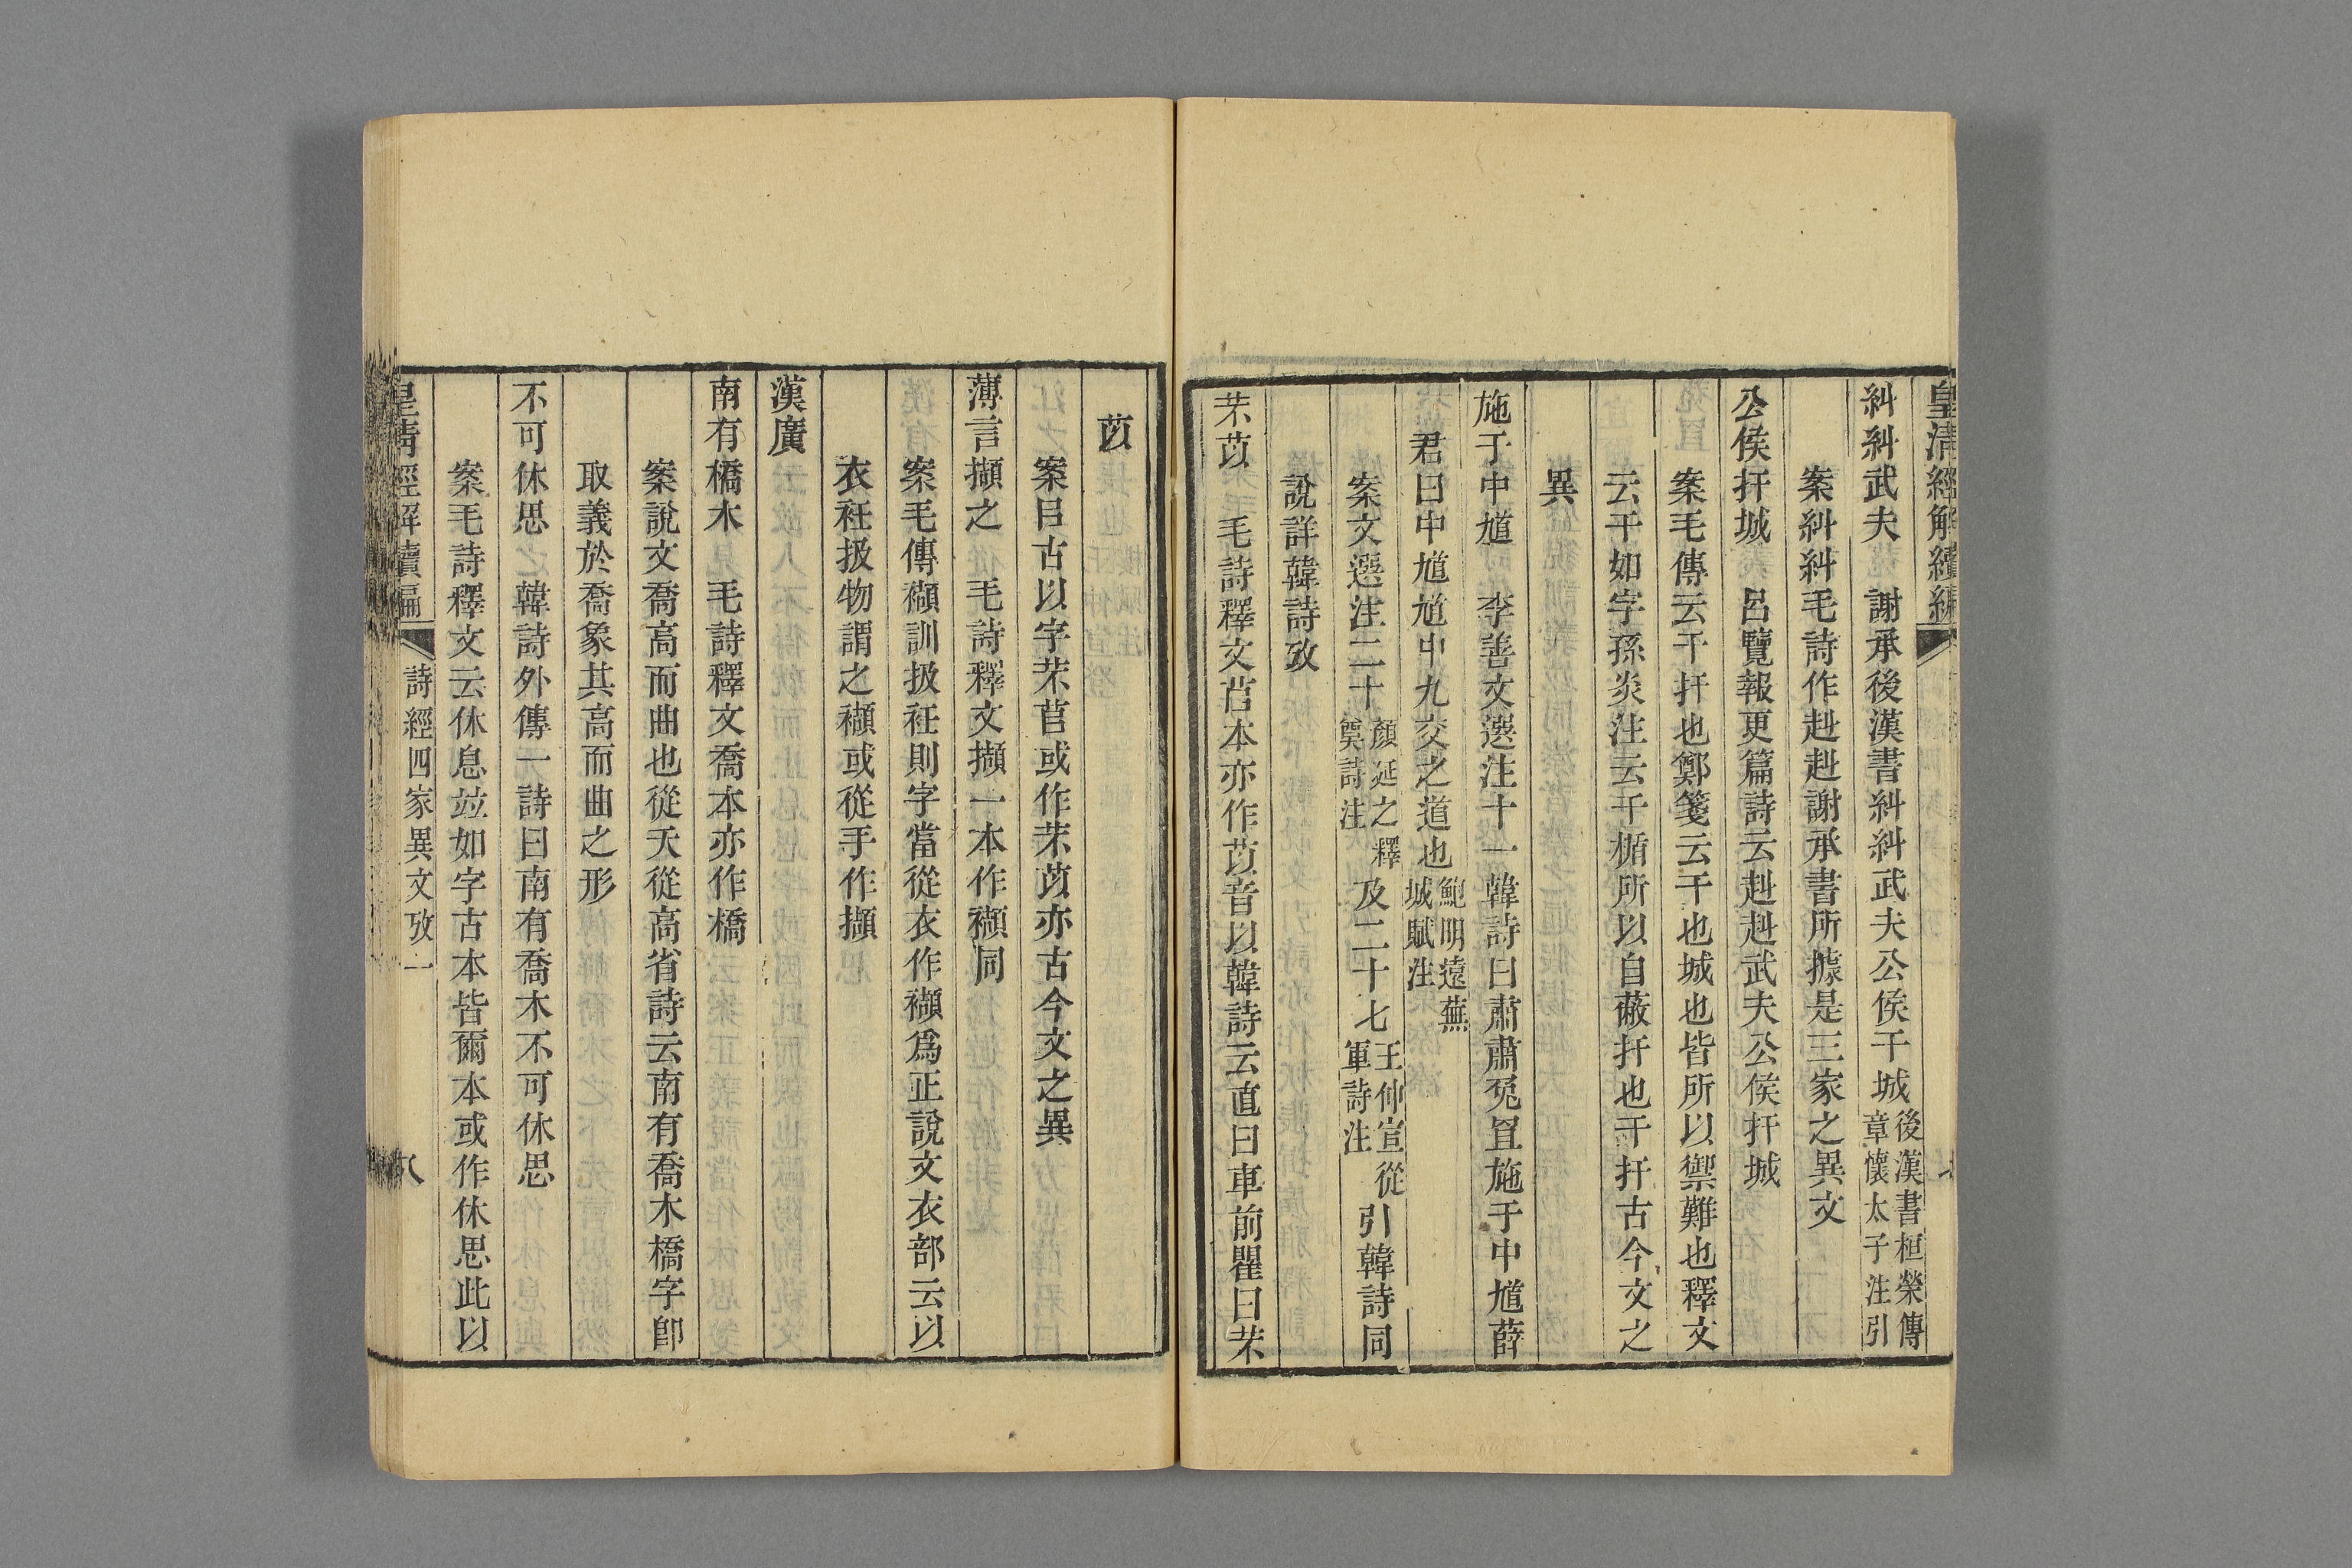 皇清經解續編
糾糾武夫　謝承後漢書糾糾武夫公侯干城後漢書桓榮傳章懷太子注引
案糾糾毛詩作赳赳謝承書所據是三家之異文
公侯扞城　呂覽報更篇詩云赳赳武夫公侯扞城
案毛傳云干扞也鄭箋云干也城也皆所以禦難也釋文
云干如字孫炎注云干楯所以自蔽扞也干扞古今文之
異
施于中馗　李善文選注十一韓詩曰肅肅兔罝施于中馗薛
君曰中馗馗中九交之道也鮑明遠蕪城賦注
案文選注二十顏延之釋奠詩注及二十七王仲宣從軍詩注引韓詩同
說詳韓詩攷
芣苡　毛詩釋文苢本亦作苡音以韓詩云直曰車前瞿曰芣
苡
案㠯古以字芣苢或作芣苡亦古今文之異
薄言擷之　毛詩釋文擷一本作襭同
案毛傳襭訓扱衽則字當從衣作襭爲正說文衣部云以
衣衽扱物謂之襭或從手作擷
漢廣
南有橋木　毛詩釋文喬本亦作橋
案說文喬高而曲也從夭從高省詩云南有喬木橋字卽
取義於喬象其高而曲之形
不可休思　韓詩外傳一詩曰南有喬木不可休思
案毛詩釋文云休息竝如字古本皆爾本或作休思此以
皇清經解續編　詩經四家異文攷一　八